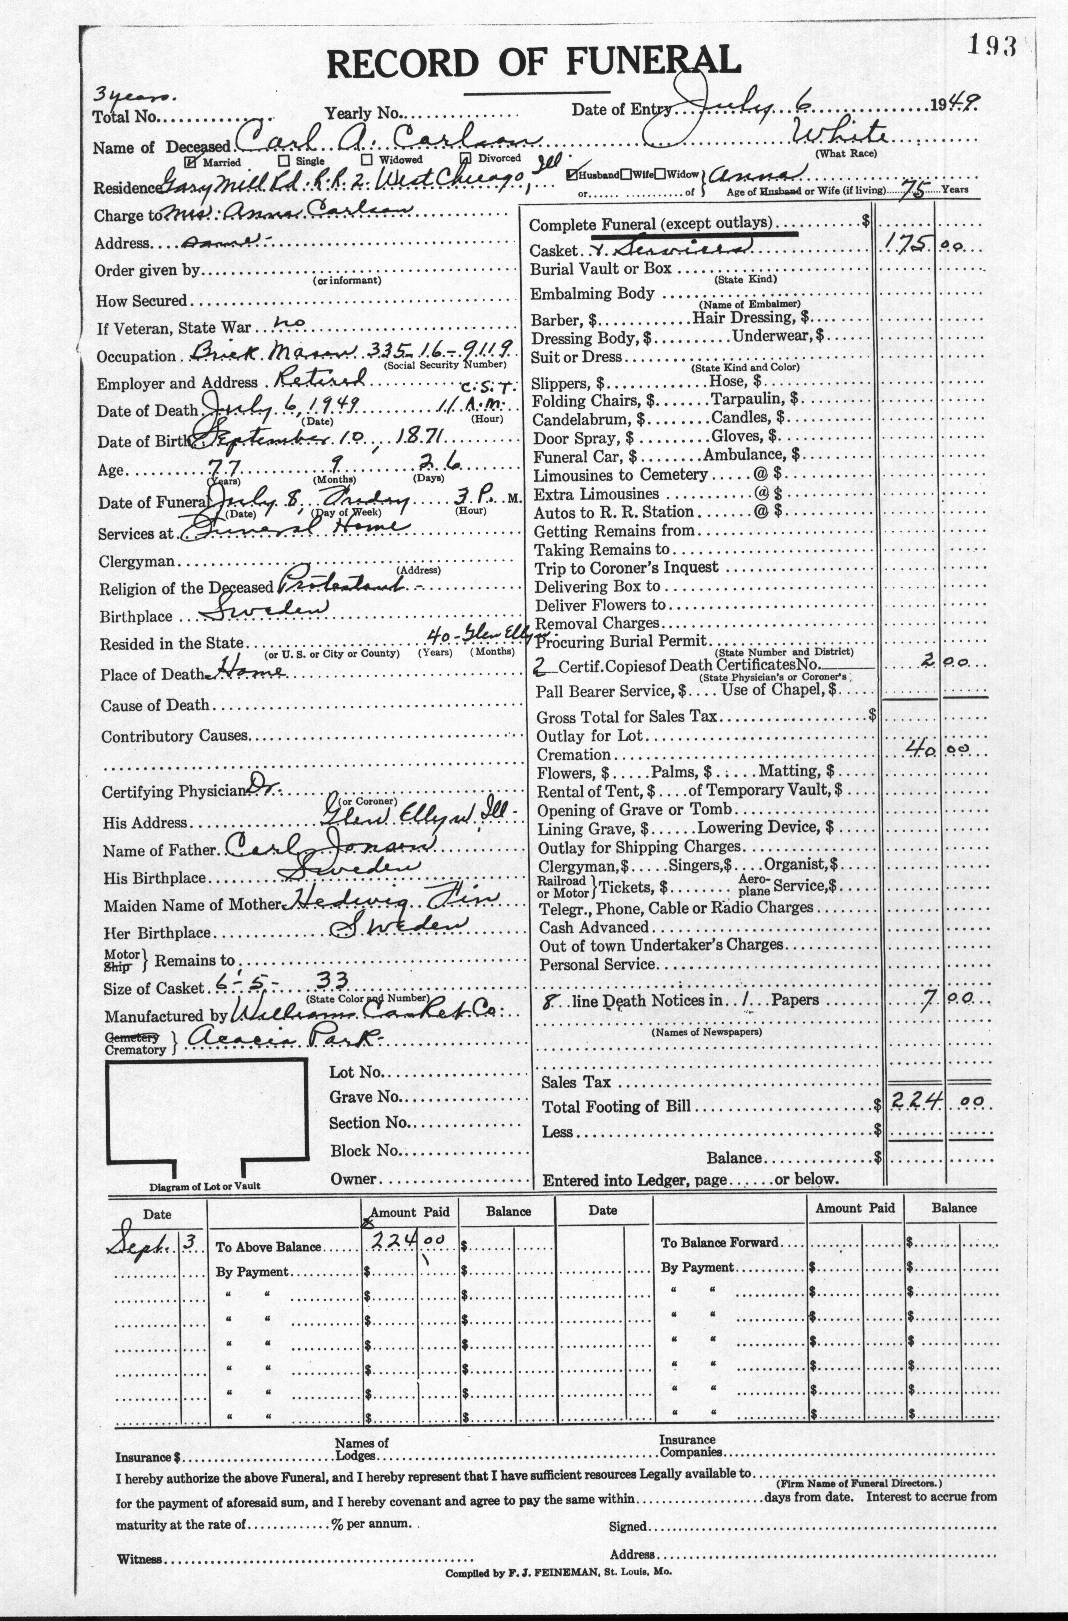 193
RECORD OF FUNERAL
3 years.
Total No. Yearly No. Date of Entry July 6 1949
Name of Deceased Carl A. Carlson White
Married Single Widowed Divorced (What Race)
Residence Gary Mill Rd. R.R. 2. West Chicago, Ill. Husband Wife Widow or of } Anna Age of Husband or Wife (if living) 75 Years
Charge to Mrs. Anna Carlson
Address same -
Order given by
(or informant)
How Secured
If Veteran, State War no
Occupation Brick Mason 335-16-9119
(Social Security Number)
Employer and Address Retired
C.S.T.
Date of Death July 6, 1949 11 A.M.
(Date) (Hour)
Date of Birth September 10, 1871
Age 77 9 26
(Years) (Months) (Days)
Date of Funeral July 8, Friday 3 P. M.
(Date) (Day of Week) (Hour)
Services at Funeral Home
Clergyman
(Address)
Religion of the Deceased Protestant -
Birthplace Sweden
Resided in the State 40 - Glen Ellyn
(or U. S. or City or County) (Years) (Months)
Place of Death Home
Cause of Death
Contributory Causes
Certifying Physician Dr.
(or Coroner)
His Address Glen Ellyn, Ill -
Name of Father Carl Jonson
His Birthplace Sweden
Maiden Name of Mother Hedwig Fin
Her Birthplace Sweden
Motor Ship } Remains to
Size of Casket 6-5- 33
(State Color and Number)
Manufactured by Williams Casket Co.
Cemetery Crematory } Acacia Park -
Lot No.
Grave No.
Section No.
Block No.
Owner
Diagram of Lot or Vault
Complete Funeral (except outlays) $
Casket & Services 175 00
Burial Vault or Box
(State Kind)
Embalming Body
(Name of Embalmer)
Barber, $ Hair Dressing, $
Dressing Body, $ Underwear, $
Suit or Dress
(State Kind and Color)
Slippers, $ Hose, $
Folding Chairs, $ Tarpaulin, $
Candelabrum, $ Candles, $
Door Spray, $ Gloves, $
Funeral Car, $ Ambulance, $
Limousines to Cemetery @ $
Extra Limousines @ $
Autos to R. R. Station @ $
Getting Remains from
Taking Remains to
Trip to Coroner's Inquest
Delivering Box to
Deliver Flowers to
Removal Charges
Procuring Burial Permit
(State Number and District)
2 Certif. Copies of Death Certificates No. 2 00
(State Physician's or Coroner's)
Pall Bearer Service, $ Use of Chapel, $
Gross Total for Sales Tax $
Outlay for Lot
Cremation 40 00
Flowers, $ Palms, $ Matting, $
Rental of Tent, $ of Temporary Vault, $
Opening of Grave or Tomb
Lining Grave, $ Lowering Device, $
Outlay for Shipping Charges
Clergyman, $ Singers, $ Organist, $
Railroad or Motor } Tickets, $ Aero-plane Service, $
Telegr., Phone, Cable or Radio Charges
Cash Advanced
Out of town Undertaker's Charges
Personal Service
8 line Death Notices in 1 Papers 7 00
(Names of Newspapers)
Sales Tax
Total Footing of Bill $ 224 00
Less $
Balance $
Entered into Ledger, page or below.
Date Amount Paid Balance Date Amount Paid Balance
Sept. 3 To Above Balance 224 00 $ To Balance Forward $
By Payment $ $ By Payment $ $
" " $ $ " " $ $
" " $ $ " " $ $
" " $ $ " " $ $
" " $ $ " " $ $
" " $ $ " " $ $
" " $ $ " " $ $
Insurance $ Names of Lodges Insurance Companies
I hereby authorize the above Funeral, and I hereby represent that I have sufficient resources Legally available to
(Firm Name of Funeral Directors.)
for the payment of aforesaid sum, and I hereby covenant and agree to pay the same within days from date. Interest to accrue from
maturity at the rate of % per annum. Signed
Witness Address
Compiled by F. J. FEINEMAN, St. Louis, Mo.